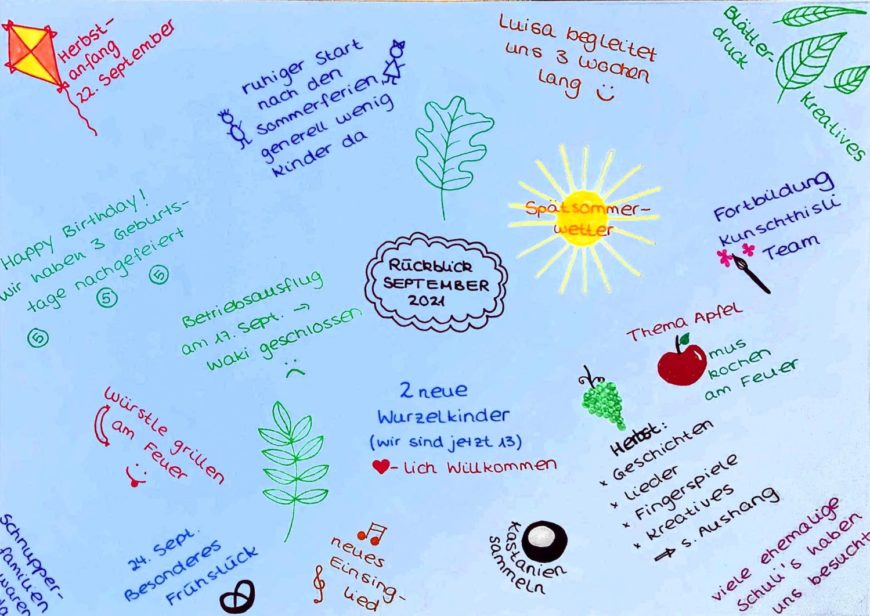 Herbst-
anfang
22. September
ruhiger Start
nach den
Sommerferien
generell wenig
Kinder da
Luisa begleitet
uns 3 Wochen
lang
Blätter-
druck
Kreatives
Happy Birthday!
wir haben 3 Geburts-
tage nachgefeiert
5
5
5
Spätsommer-
wetter
Fortbildung
Kunschthisli
Team
Rückblick
SEPTEMBER
2021
Betriebsausflug
am 17. Sept. →
Waki geschlossen
Thema Apfel
mus
kochen
am Feuer
Würstle grillen
am Feuer
2 neue
Wurzelkinder
(wir sind jetzt 13)
-lich Willkommen
Herbst:
x Geschichten
x Lieder
x Fingerspiele
x Kreatives
→ s. Aushang
Schnupper-
familien
waren
24. Sept.
Besonderes
Frühstück
neues
Einsing-
lied
Kastanien
sammeln
viele ehemalige
Schuli's haben
uns besucht